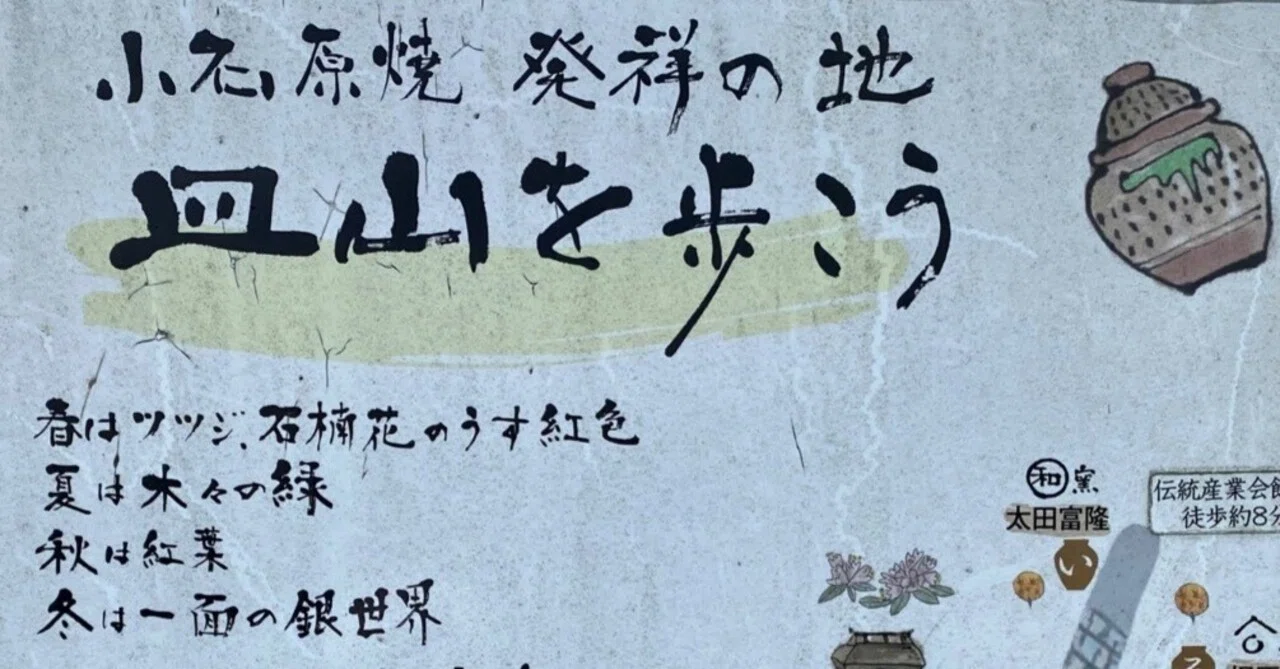 小石原焼 発祥の地
皿山を歩こう
春はツツジ、石楠花のうす紅色
夏は木々の緑
秋は紅葉
冬は一面の銀世界
和窯
太田富隆
い
伝統産業会館
徒歩約8分